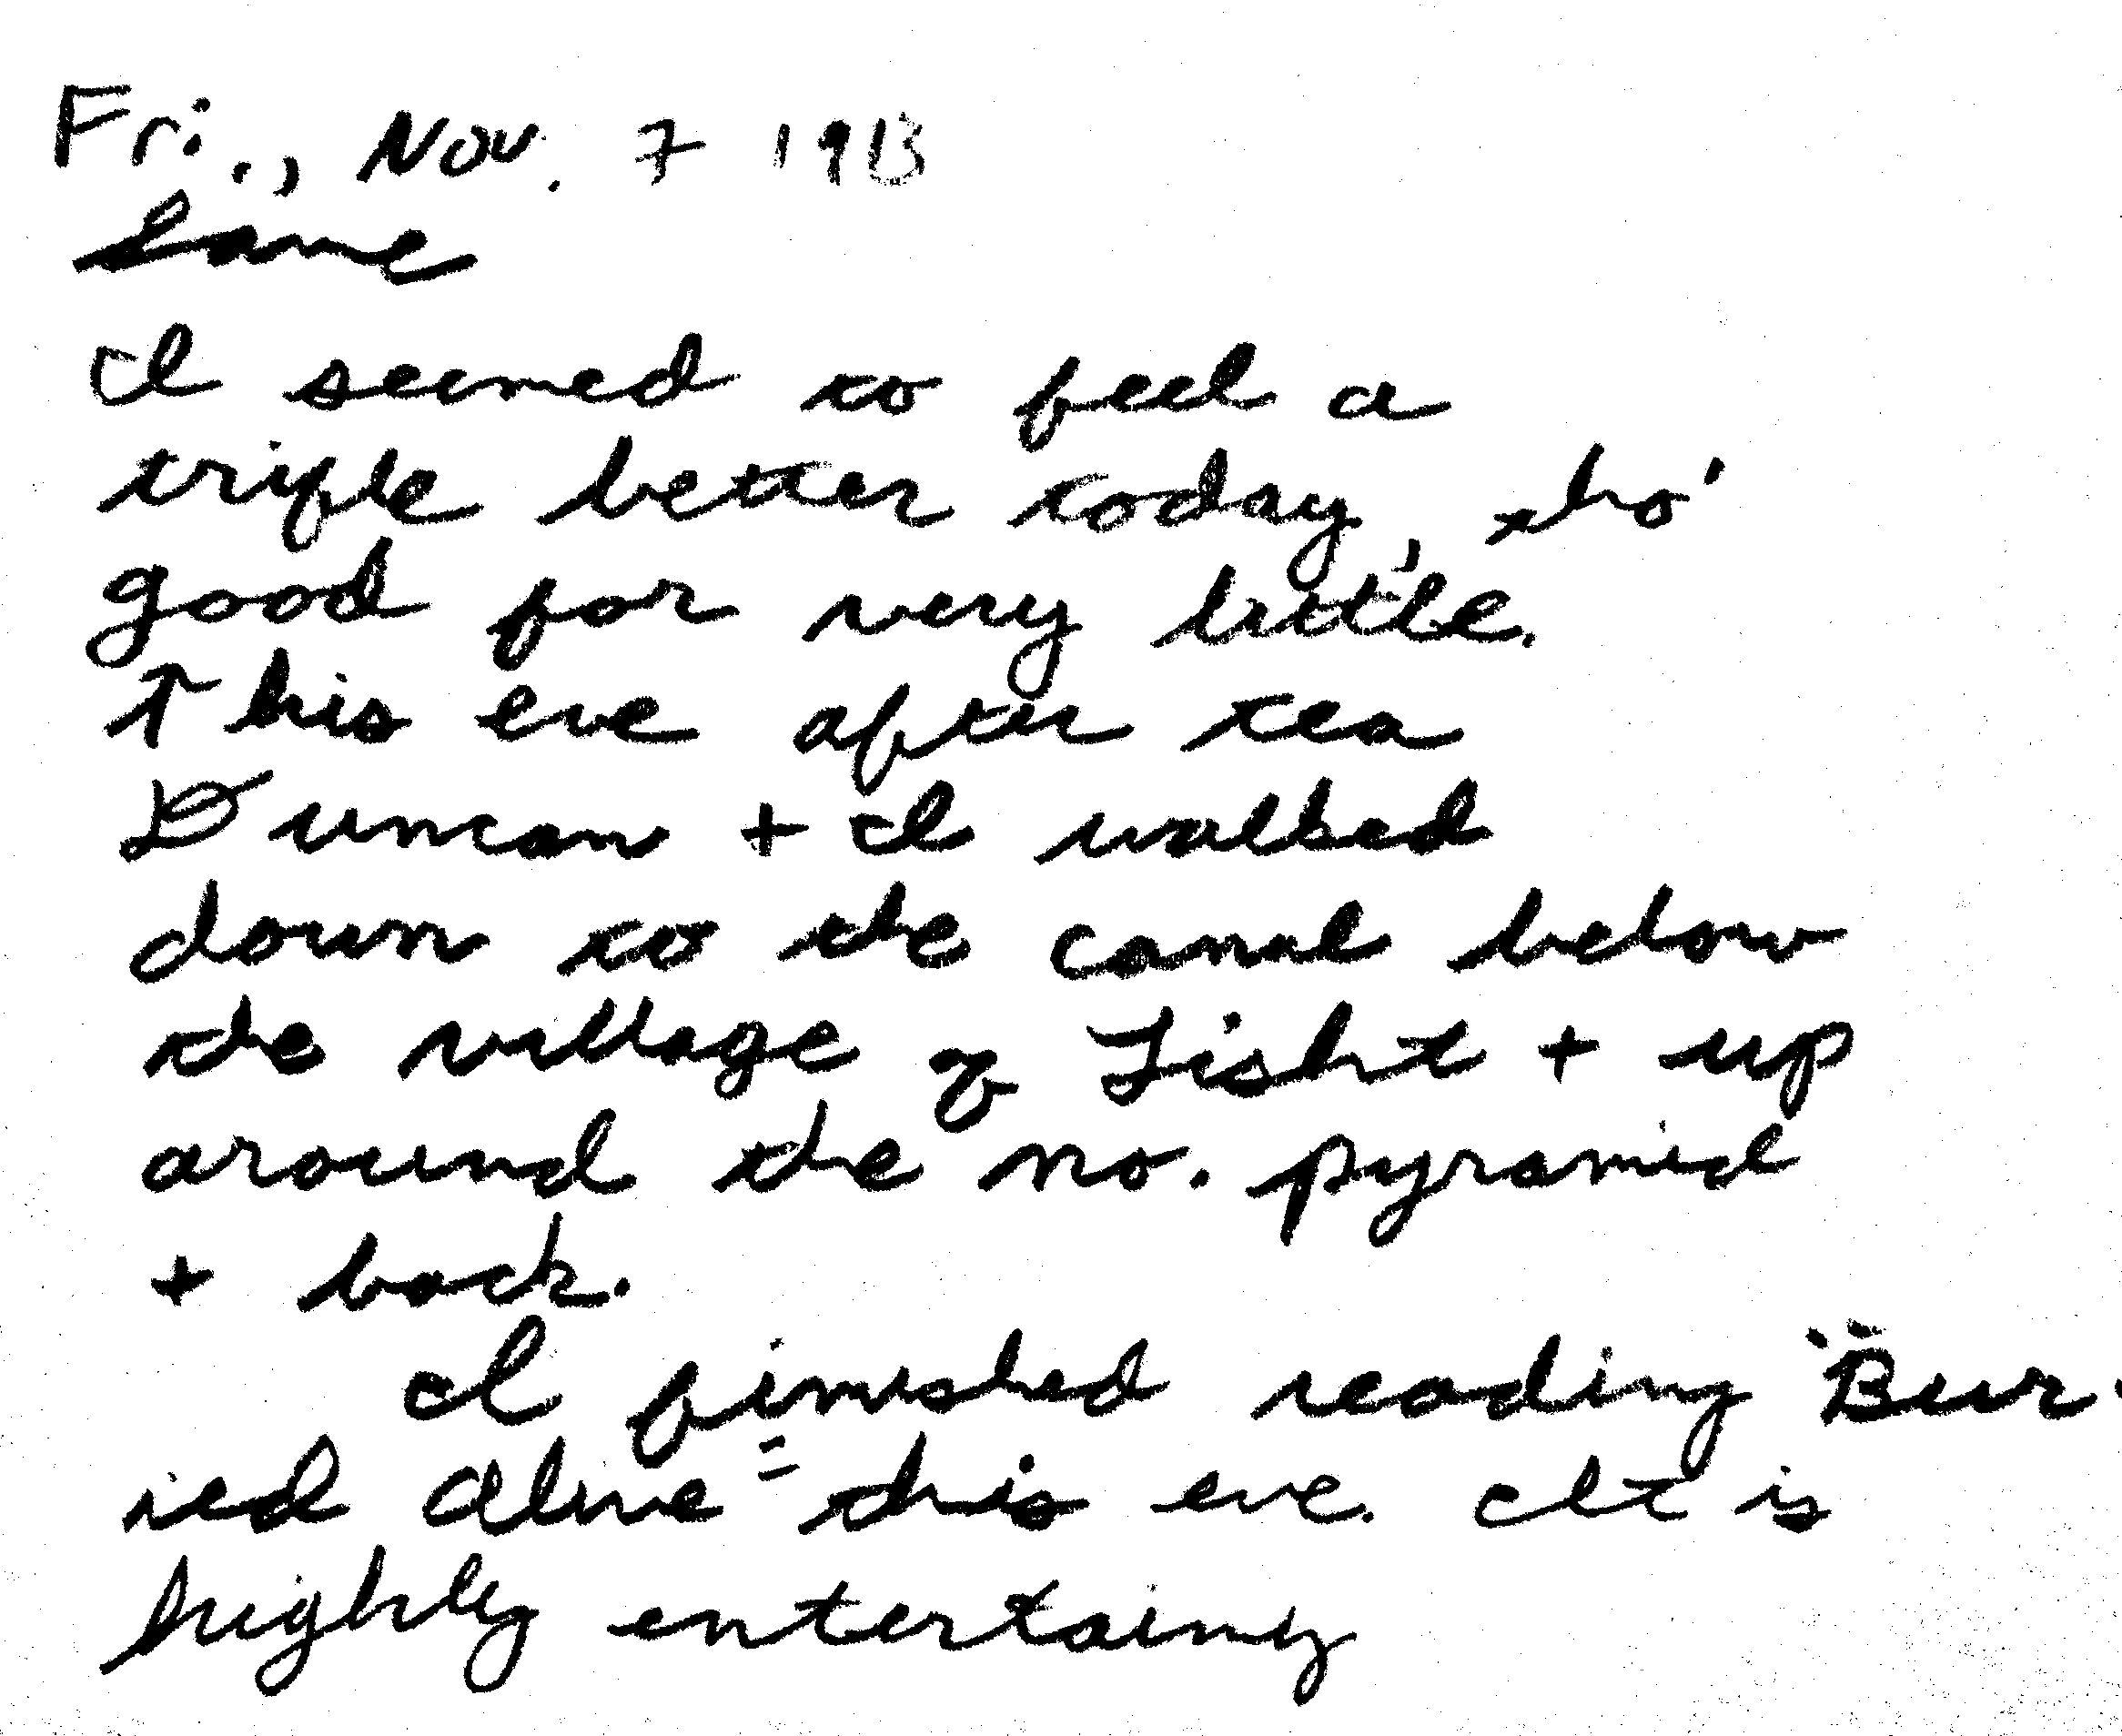 Fri., Nov. 7 1913
Same
I seemed to feel a
trifle better today, tho'
good for very little.
This eve after tea
Duncan + I walked
down to the canal below
the village of Lisht + up
around the no. pyramid
+ back.
I finished reading "Bur-
ied Alive" this eve. It is
highly entertaining